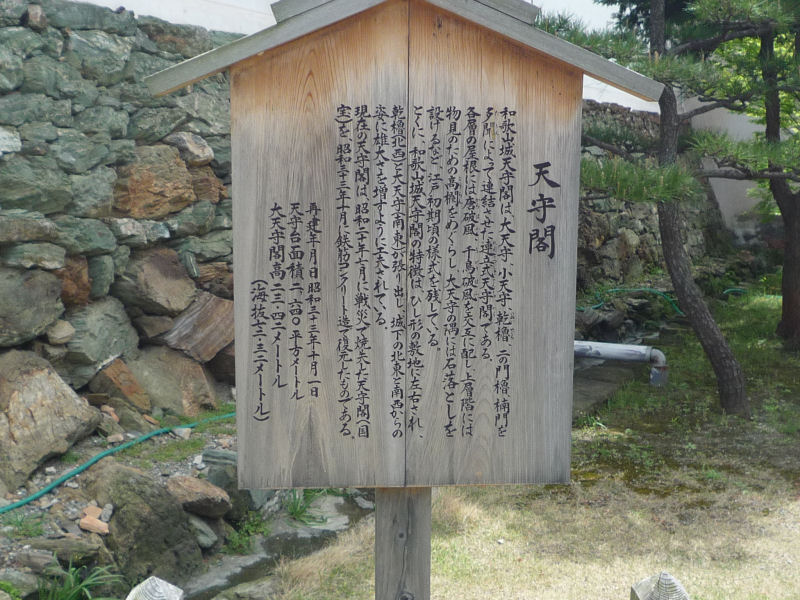 天守閣
和歌山城天守閣は、大天守・小天守・乾櫓・二の門櫓・楠門を
多聞によって連結させた連立式天守閣である。
各層の屋根には唐破風、千鳥破風を交互に配し、上層階には
物見のための高欄をめぐらし、大天守の隅には石落としを
設けるなど、江戸初期頃の様式を残している。
とくに、和歌山城天守閣の特徴は、ひし形の敷地に左右され、
乾櫓(北西)と大天守(南東)が張り出し、城下の北東と南西からの
姿に雄大さを増すように工夫されている。
現在の天守閣は、昭和二十年七月に戦災で焼失した天守閣(国
宝)を、昭和三十三年十月に鉄筋コンクリート造で復元したものである。
再建年月日 昭和三十三年十月一日
天守台面積 二、六四〇平方メートル
大天守閣高 二三・四二メートル
(海抜七三・三二メートル)